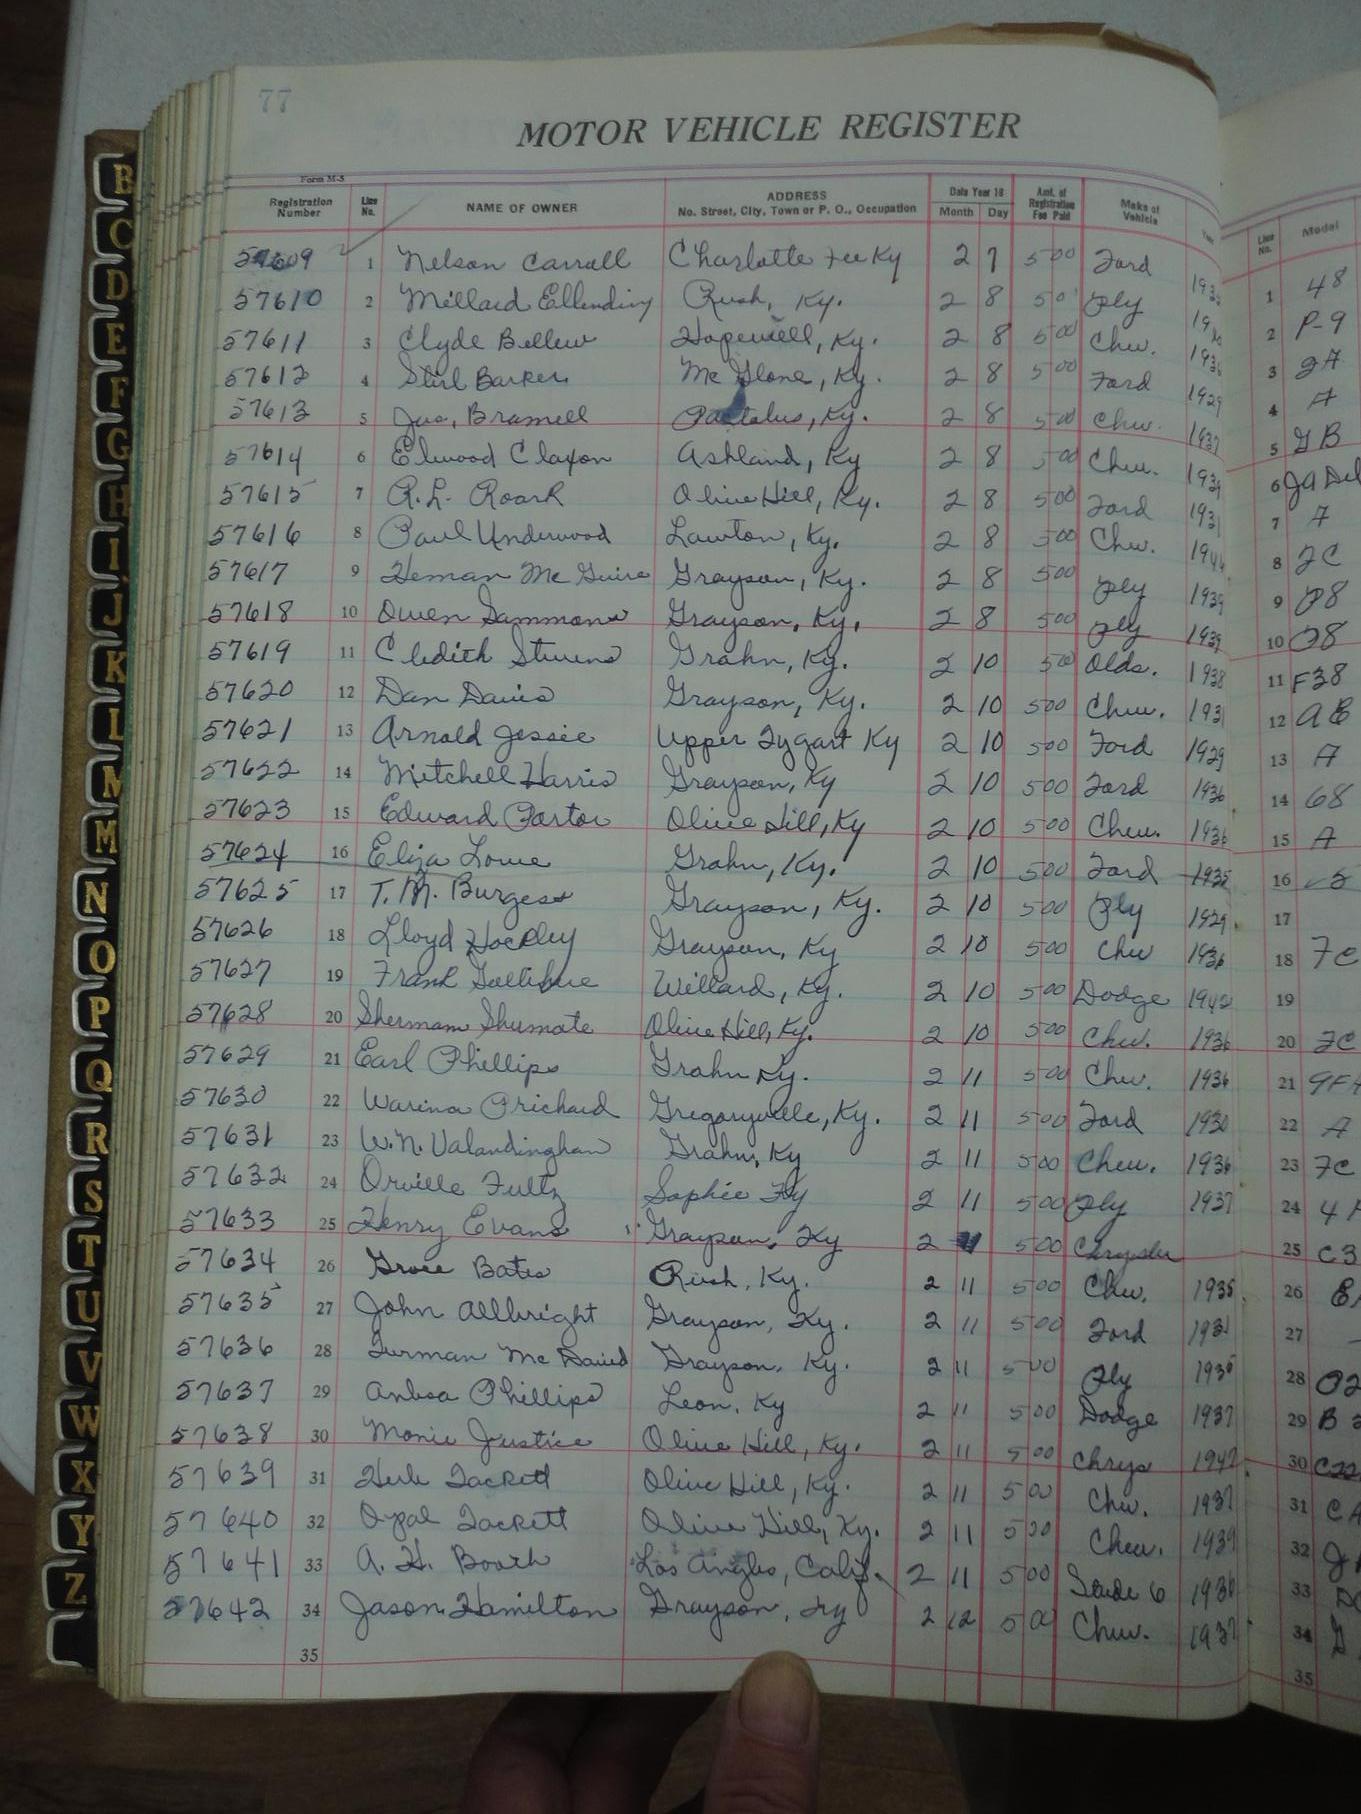 77
MOTOR VEHICLE REGISTER
Form M-5
Registration Number Line No. NAME OF OWNER ADDRESS No. Street, City, Town or P. O., Occupation Date Year 18 Month Day Amt. of Registration Fee Paid Make of Vehicle Year Line No. Model
57609 1 Nelson Carroll Charlotte Fee Ky 2 7 5 00 Ford 48
57610 2 Millard Rush, Ky. 2 8 5 0 Ply P-9
57611 3 Clyde Bellew Hopewell, Ky. 2 8 5 00 Chev. 1936 3
57612 4 Stirl Barker Mc Glone, Ky. 2 8 5 00 Ford 1929 4 A
57613 5 Jas. Bramell Pactolus, Ky. 2 8 5 00 Chev. 1937 5 GB
57614 6 Elwood Claxon Ashland, Ky 2 8 5 00 Chev. 1939 6
57615 7 R. L. Roark Olive Hill, Ky. 2 8 5 00 Ford 1931 7 A
57616 8 Paul Underwood Lawton, Ky. 2 8 5 00 Chev. 8
57617 9 Heman Mc Guire Grayson, Ky. 2 8 5 00 Ply 1939 9 P8
57618 10 Owen Sammons Grayson, Ky. 2 8 5 00 Ply 1939 10
57619 11 Cledith Stevens Grahn, Ky. 2 10 5 00 Olds. 1938 11 F38
57620 12 Dan Davis Grayson, Ky. 2 10 5 00 Chev. 1931 12
57621 13 Arnold Jessie Upper Tygart Ky 2 10 5 00 Ford 1929 13 A
57622 14 Mitchell Harris Grayson, Ky 2 10 5 00 Ford 1936 14 68
57623 15 Edward Porter Olive Hill, Ky 2 10 5 00 Chev. 1936 15 A
57624 16 Eliza Lowe Grahn, Ky. 2 10 5 00 Ford 1935 16
57625 17 T. M. Burgess Grayson, Ky. 2 10 5 00 Ply 1929 17
57626 18 Lloyd Grayson, Ky 2 10 5 00 Chev 1936 18 7C
57627 19 Frank Willard, Ky. 2 10 5 00 Dodge 1942 19
57628 20 Sherman Shumate Olive Hill, Ky. 2 10 5 00 Chev. 1936 20
57629 21 Earl Phillips Grahn Ky. 2 11 5 00 Chev. 1936 21
57630 22 Warina Prichard Gregoryville, Ky. 2 11 5 00 Ford 1930 22 A
57631 23 W. N. Valandingham Grahn, Ky 2 11 5 00 Chev. 1936 23 7C
57632 24 Orville Fultz Sophie Ky 2 11 5 00 Ply 1937 24
57633 25 Henry Evans Grayson, Ky 2 5 00 Chrysler 25 C3
57634 26 Grace Bates Rush, Ky. 2 11 5 00 Chev. 1935 26
57635 27 John Allbright Grayson, Ky. 2 11 5 00 Ford 1931 27
57636 28 Furman Mc David Grayson, Ky. 2 11 5 00 Ply 28
57637 29 Phillips Leon, Ky 2 11 5 00 Dodge 1937 29
57638 30 Monie Justice Olive Hill, Ky. 2 11 5 00 Chrys 1947 30
57639 31 Herb Tackett Olive Hill, Ky. 2 11 5 00 Chev. 1937 31
57640 32 Opal Tackett Olive Hill, Ky. 2 11 5 00 Chev. 1939 32
57641 33 A. H. Booth Los Angles, Calif. 2 11 5 00 Stude 6 33
57642 34 Jason Hamilton Grayson, Ky 2 12 5 00 Chev. 1937 34
35 35
B
C
D
E
F
G
H
I
J
K
L
M
M
N
O
P
Q
R
S
T
U
V
W
X
Y
Z